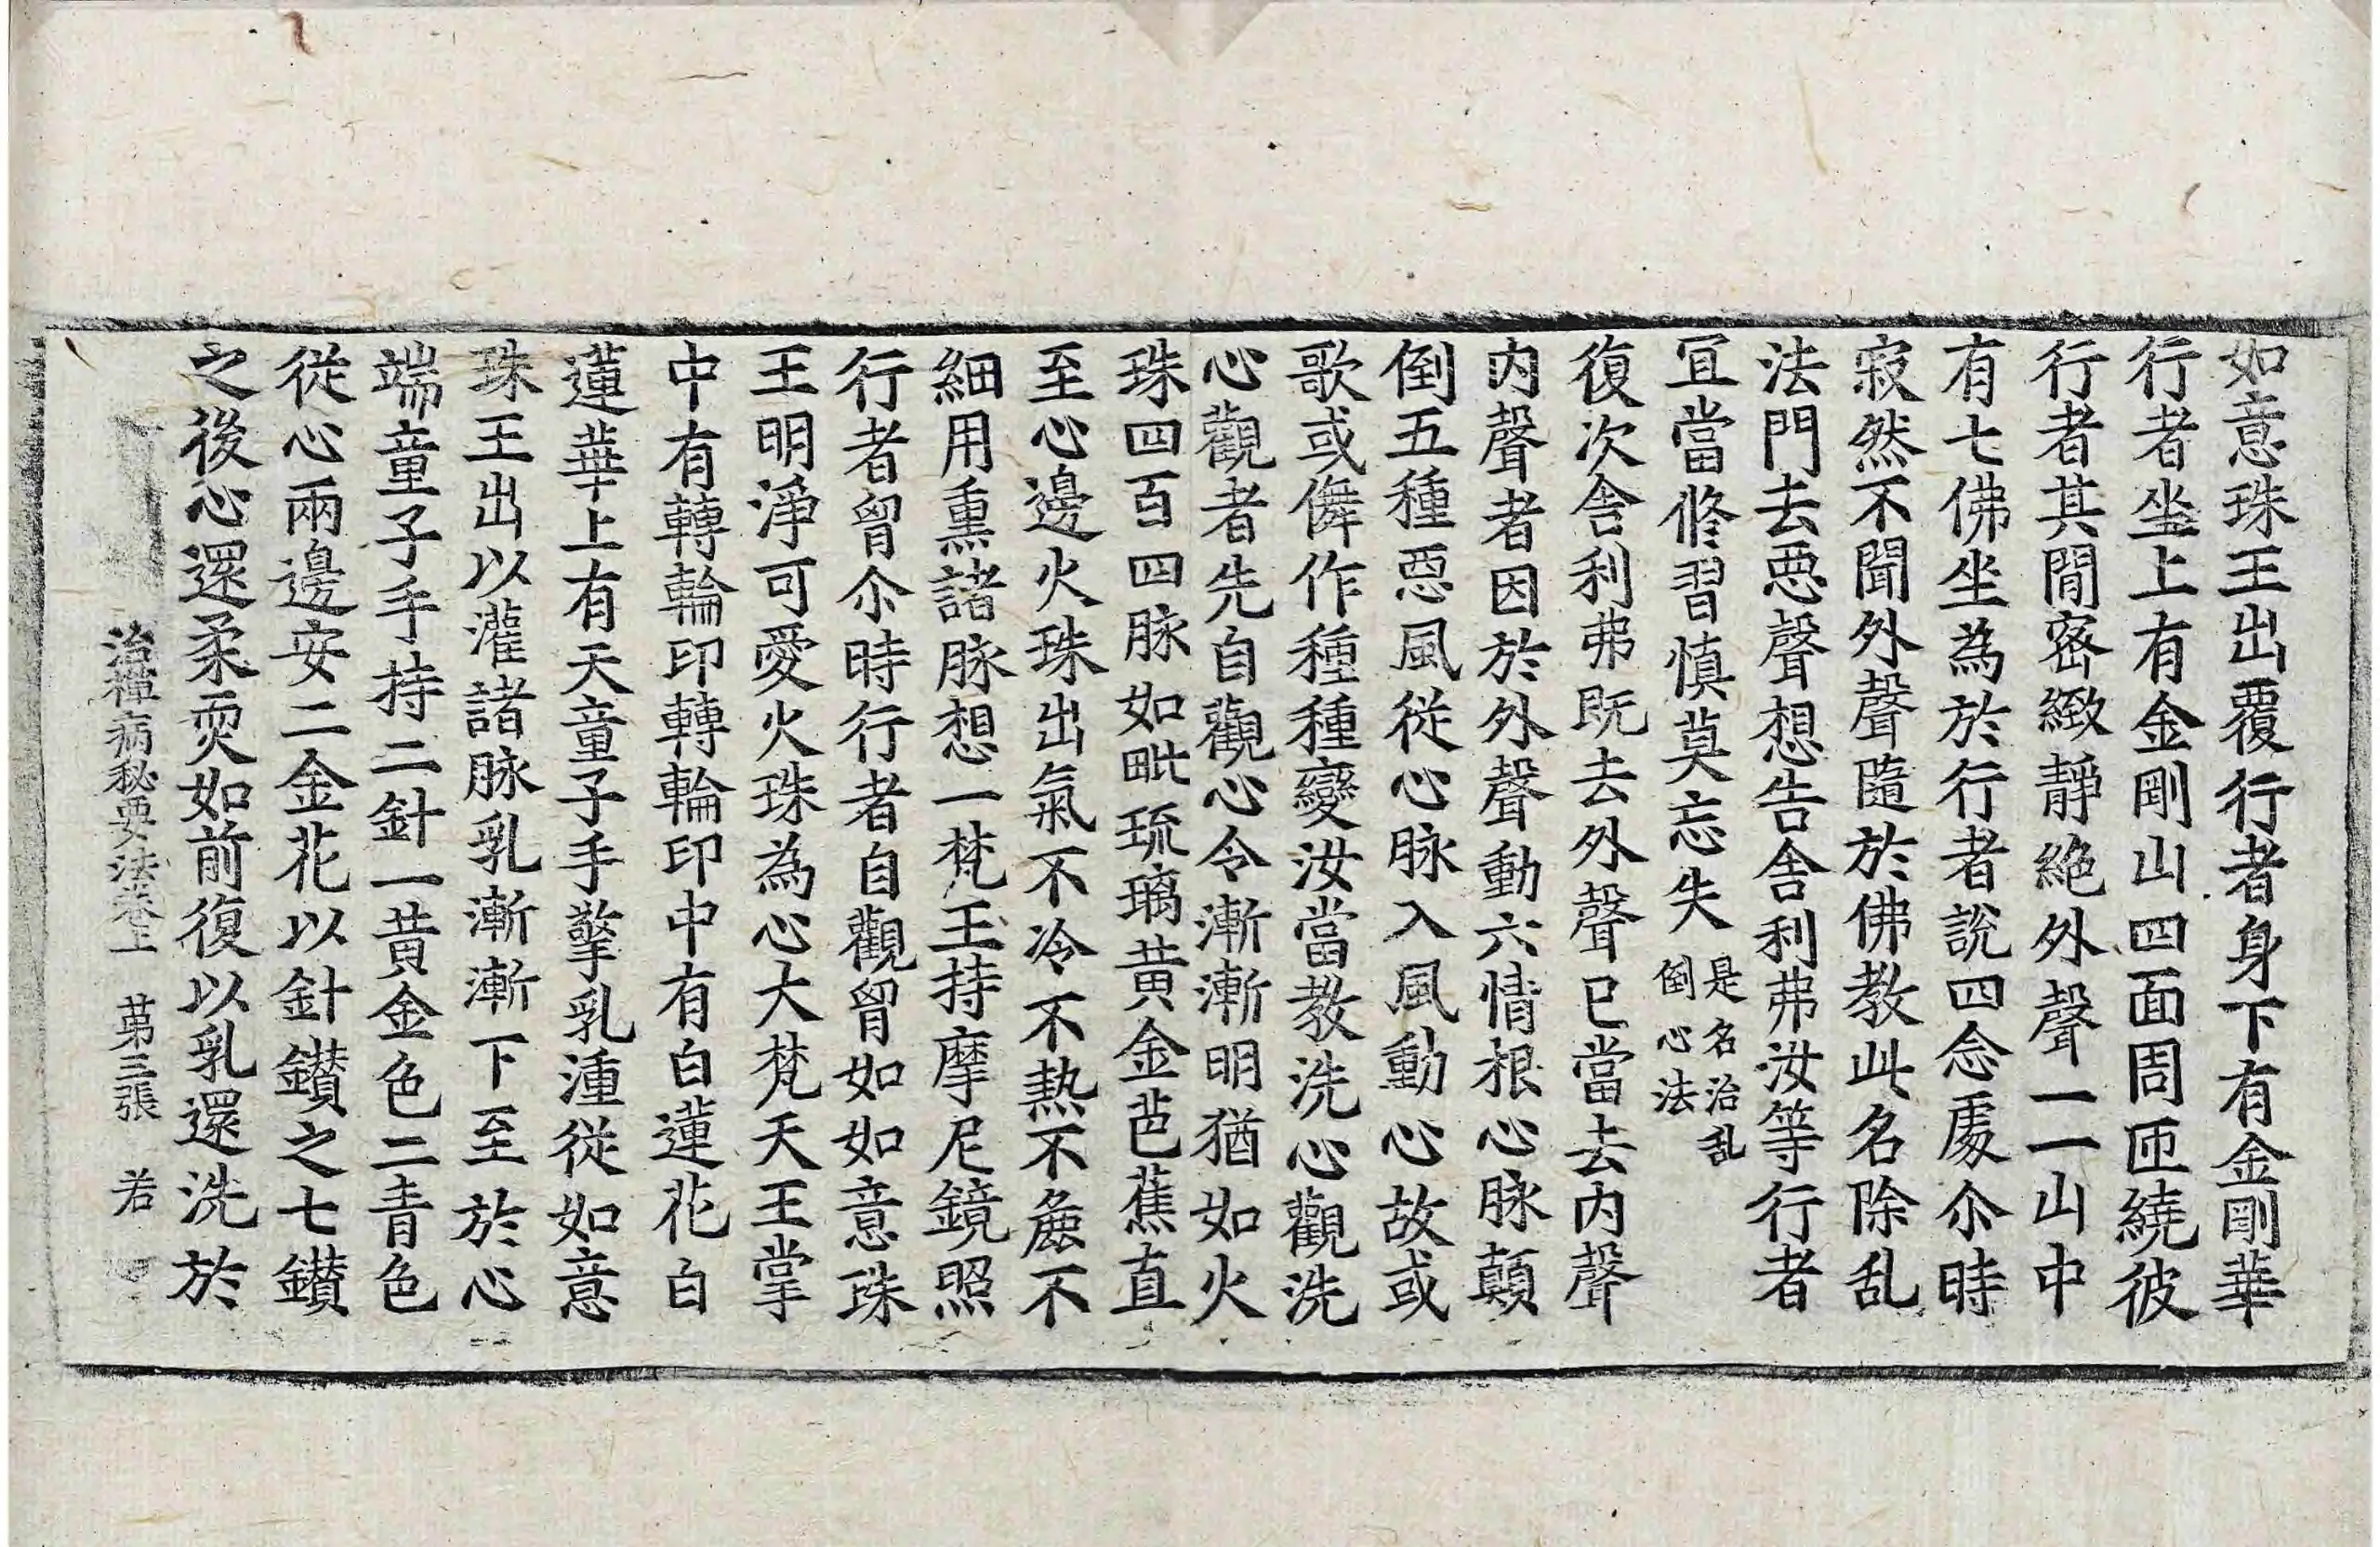 如意珠王出覆行者身下有金剛華
行者坐上有金剛山四面周匝繞彼
行者其間密緻靜絶外聲一一山中
有七佛坐為於行者說四念䖏尒時
寂然不聞外聲隨於佛教此名除乱
法門去惡聲想告舍利弗汝等行者
冝當修習慎莫忘失是名治乱
倒心法
復次舍利弗既去外聲已當去内聲
内聲者因於外聲動六情根心脉顛
倒五種惡風從心脉入風動心故或
歌或儛作種種變汝當教洗心觀洗
心觀者先自觀心令漸漸明猶如火
珠四百四脉如毗琉璃黄金芭蕉直
至心邊火珠出氣不冷不熱不麁不
細用熏諸脉想一梵王持摩尼鏡照
行者胷尒時行者自觀胷如如意珠
王明淨可愛火珠為心大梵天王掌
中有轉輪印轉輪印中有白蓮花白
蓮華上有天童子手擎乳湩從如意
珠王出以灌諸脉乳漸漸下至於心
端童子手持二針一黄金色二青色
從心兩邊安二金花以針鑚之七鑚
之後心還柔耎如前復以乳還洗於
治禪病秘要法卷上　苐三張　若